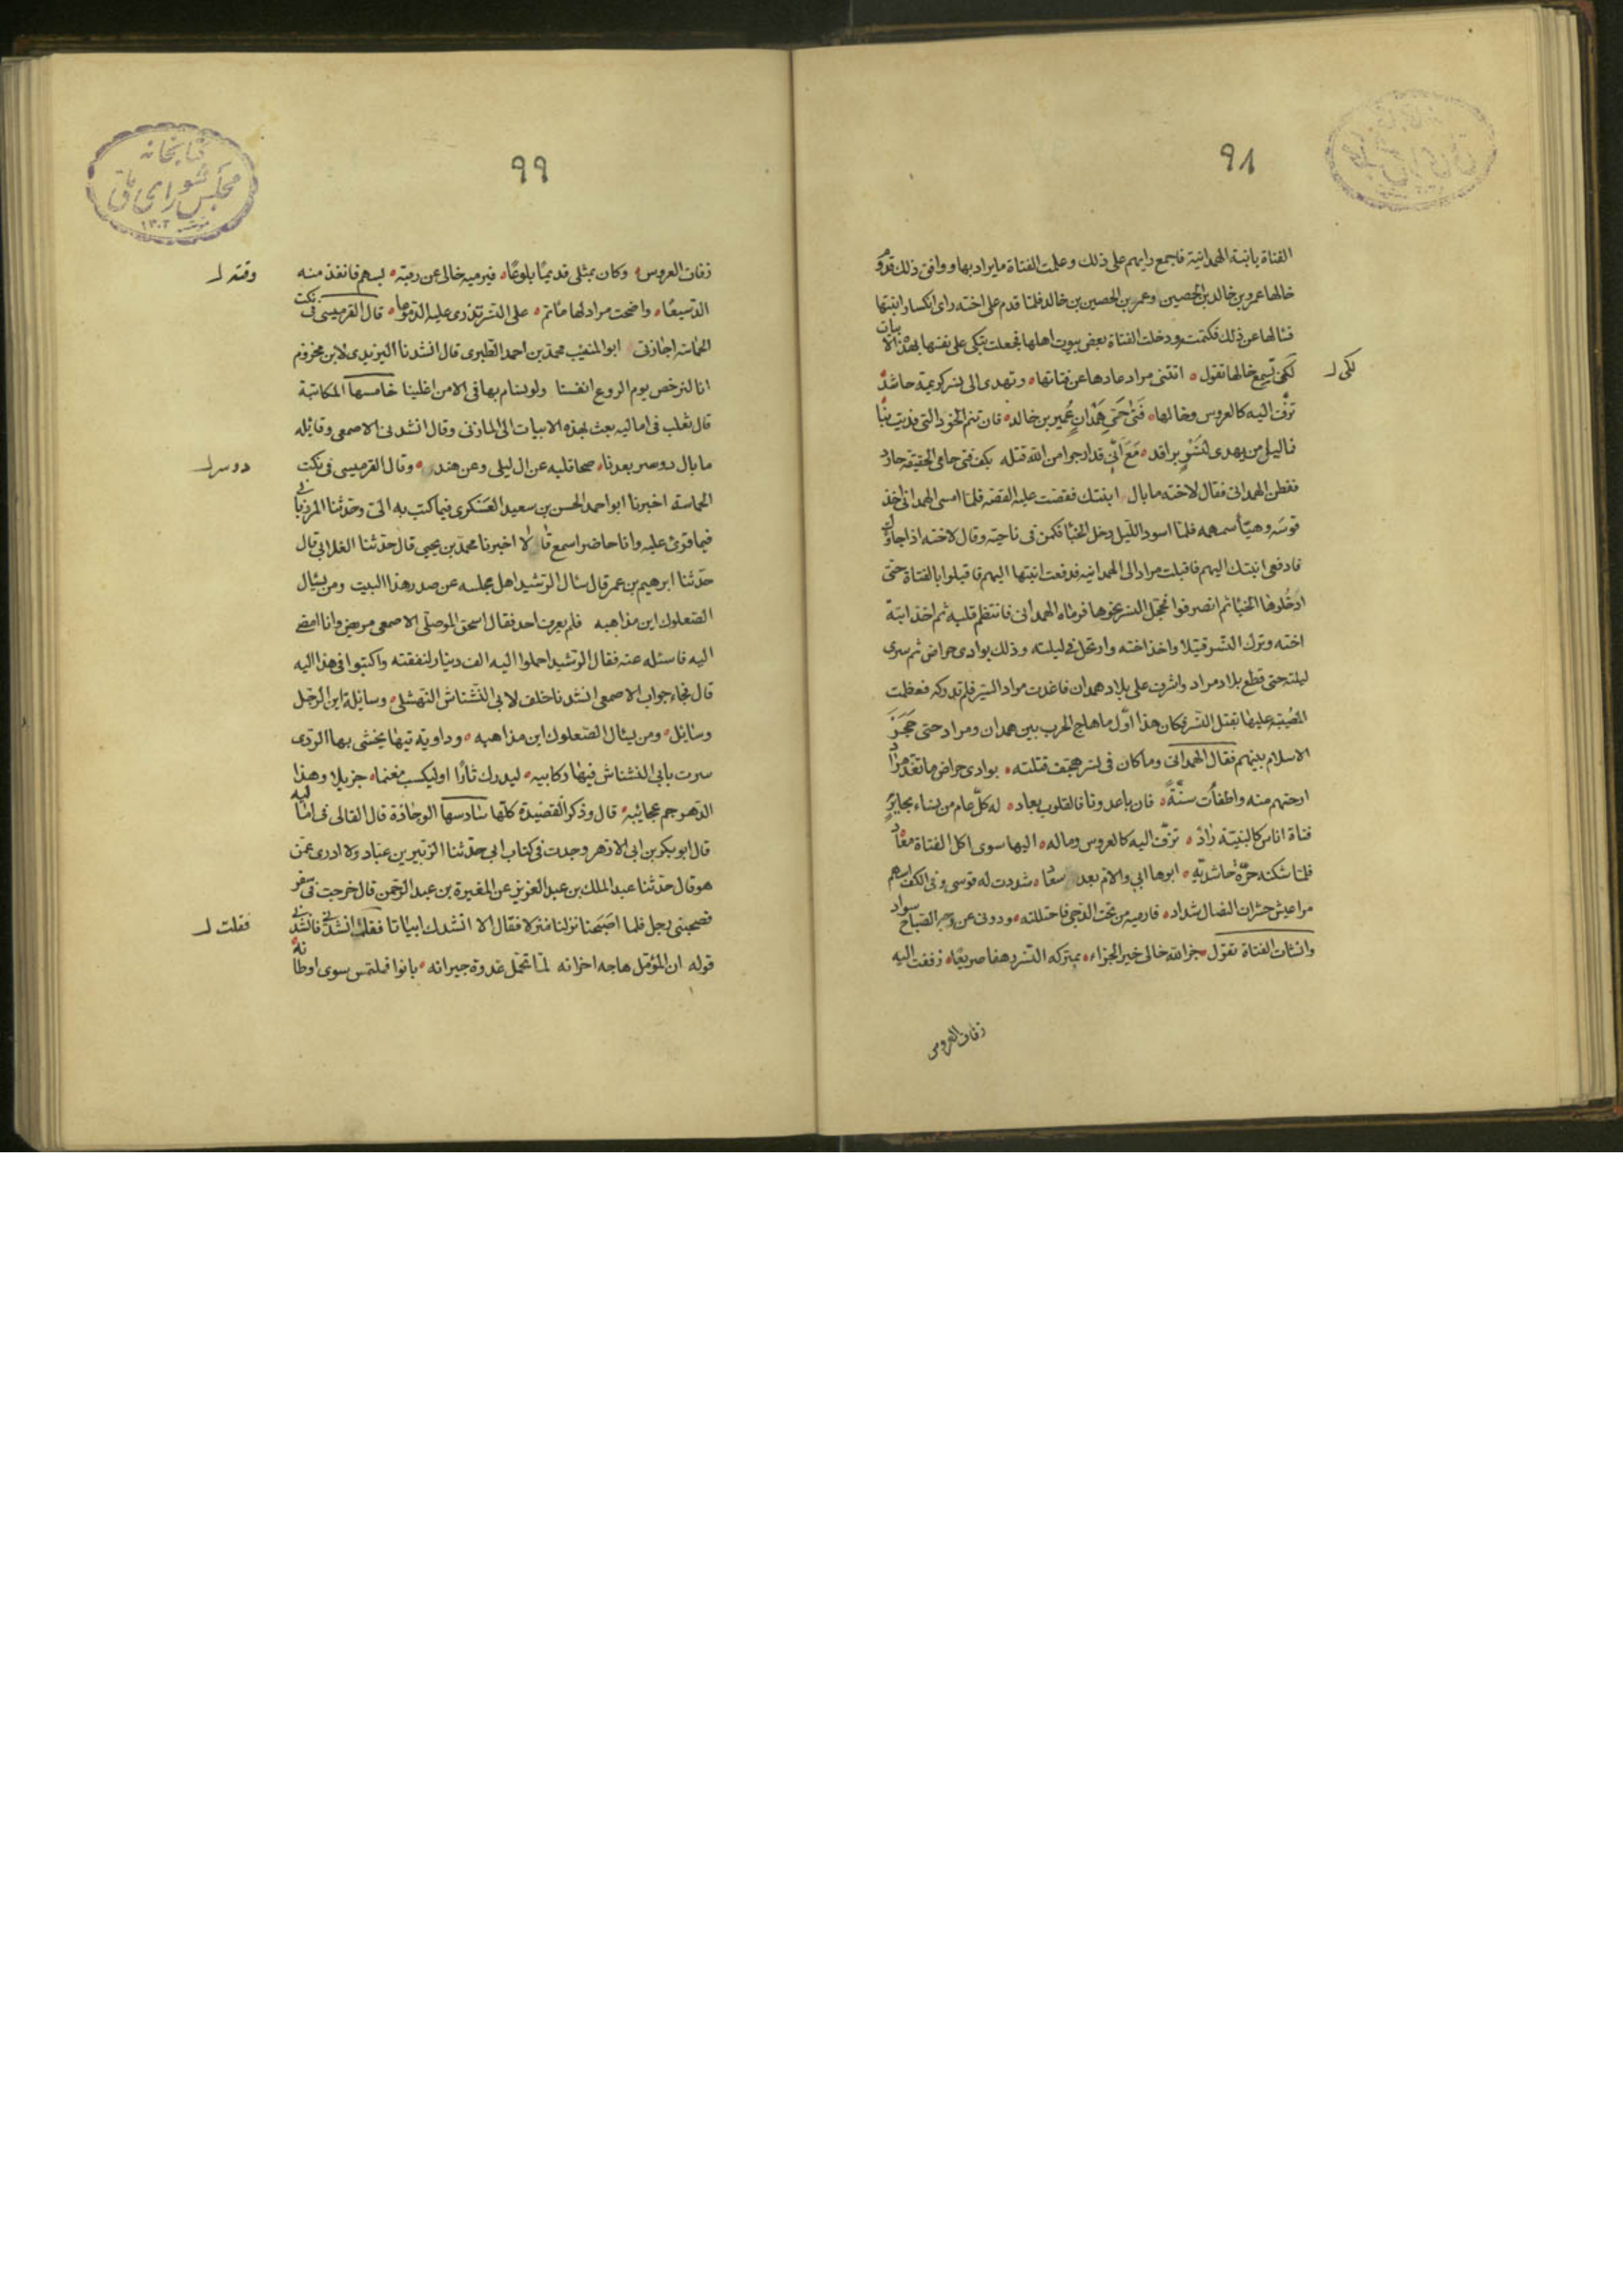 ٩٨
الفتاة بابنة الهمدانية فاجمع رايهم على ذلك وعلمت الفتاة ما يراد بها ووافق ذلك قدوم
خالها عمرو بن خالد بن الحصين وعمرو بن الحصين بن خالد فلما قدم على اخته راى انكسار ابنتها
فسالها عن ذلك فكتمته ودخلت الفتاة بعض بيوت اهلها فجعلت تبكى على نفسها بهذه الابيات
لكى يسمع خالها تقول اتثنى مراد عادها عن فتاتها وتهدى الى نسر كريمة حاشد
لكى لـ
تزف اليه كالعروس وخالها فتى حى همدان عمير بن خالد فان تنم الخود التى فديت بنا
فما ليل من يهدى لنسر براقد مع انى قد ارجوا من الله قتله بكف فتى حامى الحقيقة حارد
ففطن الهمدانى فقال لاخته ما بال ابنتك فقصت عليه القصه فلما امسى الهمدانى اخذ
قوسه وهيأ سهمه فلما اسود الليل دخل الخبا فكمن فى ناحيته وقال لاخته اذا جاؤك
فادفعى ابنتك اليهم فاقبلت مراد الى الهمدانيه فدفعت ابنتها اليهم فاقبلوا بالفتاة حتى
ادخلوها الخبا ثم انصرفوا فحجل النسر نحوها فرماه الهمدانى فانتظم قلبه ثم اخذ ابنة
اخته وترك النسر قتيلا واخذ اخته وارتحل فى ليلته وذلك بوادى حراض ثم سرى
ليلته حتى قطع بلاد مراد واشرف على بلاد همدان فاغذت مراد السير فلم تدركه فعظمت
المصيبه عليها بقتل النسر فكان هذا اول ما هاج الحرب بين همدان ومراد حتى حجز
الاسلام بينهم فقال الهمدانى وما كان فى نسر هجف قتلته بوادى حراض ما تغذ مراد
ارحتهم منه واطفأت سنة فان باعدونا فالقلوب بعاد له كل عام من نساء
فتاة اناس كالبنية زاد تزف اليه كالعروس وماله اليها سوى اكل الفتاة معاد
فلما شكته حرة حاشدية ابوها ابى والام بعد سعاد شددت له قوسى وفى الكف اسهم
مراعيش حشران النصال شداد فارميه من تحت الدجى فاحتللته ودونى عن وجه الصباح سواد
وانشات الفتاة تقول جزا الله خالى خير الجزاء بمتركه النسر دهفا صريعا زففت اليه
زفاف العروس
٩٩
زفاف العروس وكان بمثلى قديما بلوعا فيرميه خالى عن رمية بسهم فانفذ منه
وقته لـ
الدسيعا واضحت مراد لها ماتم على النسر تذرى عليه الدموعا قال القرميسى فى نكت
الحماسة اجازنى ابو المنيب محمد بن احمد الطبرى قال انشدنا اليزيدى لابن مخزوم
انا لنرخص يوم الروع انفسنا ولو نسام بها فى الامن اغلينا خامسها المكاتبة
قال ثعلب فى اماليه بعث بهذه الابيات الى المازنى وقال انشدنى الاصمعى وقايله
ما بال دوسر بعدنا صحا قلبه عن ال ليلى وعن هند وقال القرميسى فى نكت
دوسر لـ
الحماسة اخبرنا ابو احمد الحسن بن سعيد العسكرى فيما كتب به الى وحدثنا المرزبانى
فيما قرئ عليه وانا حاضر اسمع قالا اخبرنا محمد بن يحيى قال حدثنا الغلابى قال
حدثنا ابرهيم بن عمر قال سئال الرشيد اهل مجلسه عن صدر هذا البيت ومن يسئال
الصعلوك اين مذاهبه فلم يعرف احد فقال اسحق الموصلى الاصمعى مريض وانا امضى
اليه فاسئله عنه فقال الرشيد احملوا اليه الف دينار لنفقته واكتبوا فى هذا اليه
قال فجاء جواب الاصمعى انشدنا خلف لابى النشناش النهشلى وسايلة اين الرحيل
وسائل ومن يسئال الصعلوك اين مذاهبه وداوية تيها يخشى بها الردى
سرت بابى النشناش فيها ركابيه ليدرك ثارا او ليكسب مغنما جزيلا وهذا
الدهر جم عجايبه قال وذكر القصيدة كلها سادسها الوجادة قال القالى فى اماليه
قال ابو بكر بن ابى الازهر وجدت فى كتاب ابى حدثنا الزبير بن عباد ولا ادرى عمن
هو قال حدثنا عبد الملك بن عبد العزيز عن المغيرة بن عبد الرحمن قال خرجت فى سفر
فصحبنى رجل فلما اصبحنا نزلنا منزلا فقال الا انشدك ابياتا فقلت انشدنى فانشدنى
فقلت لـ
قوله ان المؤمل هاجه احزانه لما تحمل غدوة جيرانه بانوا فملتمس سوى اوطانه
كتابخانه
مجلس شوراى ملى
١٣٠٢